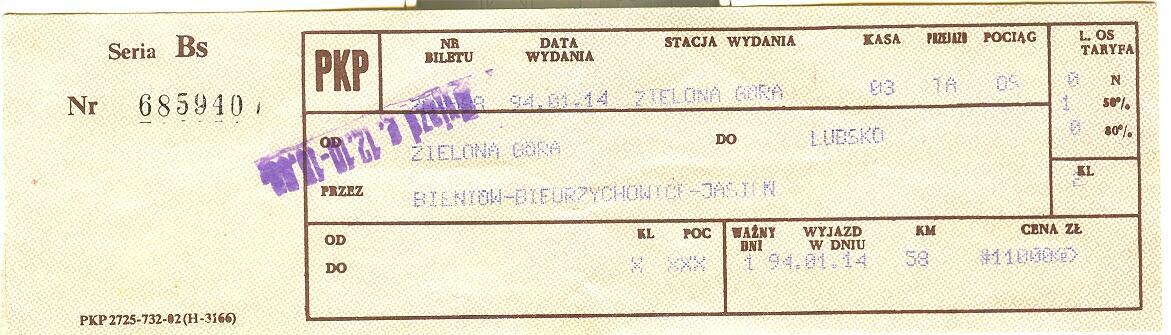 Seria Bs
Nr 685940
PKP
NR BILETU
DATA WYDANIA
STACJA WYDANIA
KASA
PRZEJAZD
POCIĄG
L. OS TARYFA
94.01.14 ZIELONA GÓRA 03 TA OS
0 N
1 50%
0 80%
OD ZIELONA GÓRA DO LUBSKO
PRZEZ
KL
2
OD KL POC
DO X XXX
WAŻNY DNI
WYJAZD W DNIU
KM
CENA ZŁ
1 94.01.14 58
PKP 2725-732-02 (H-3166)